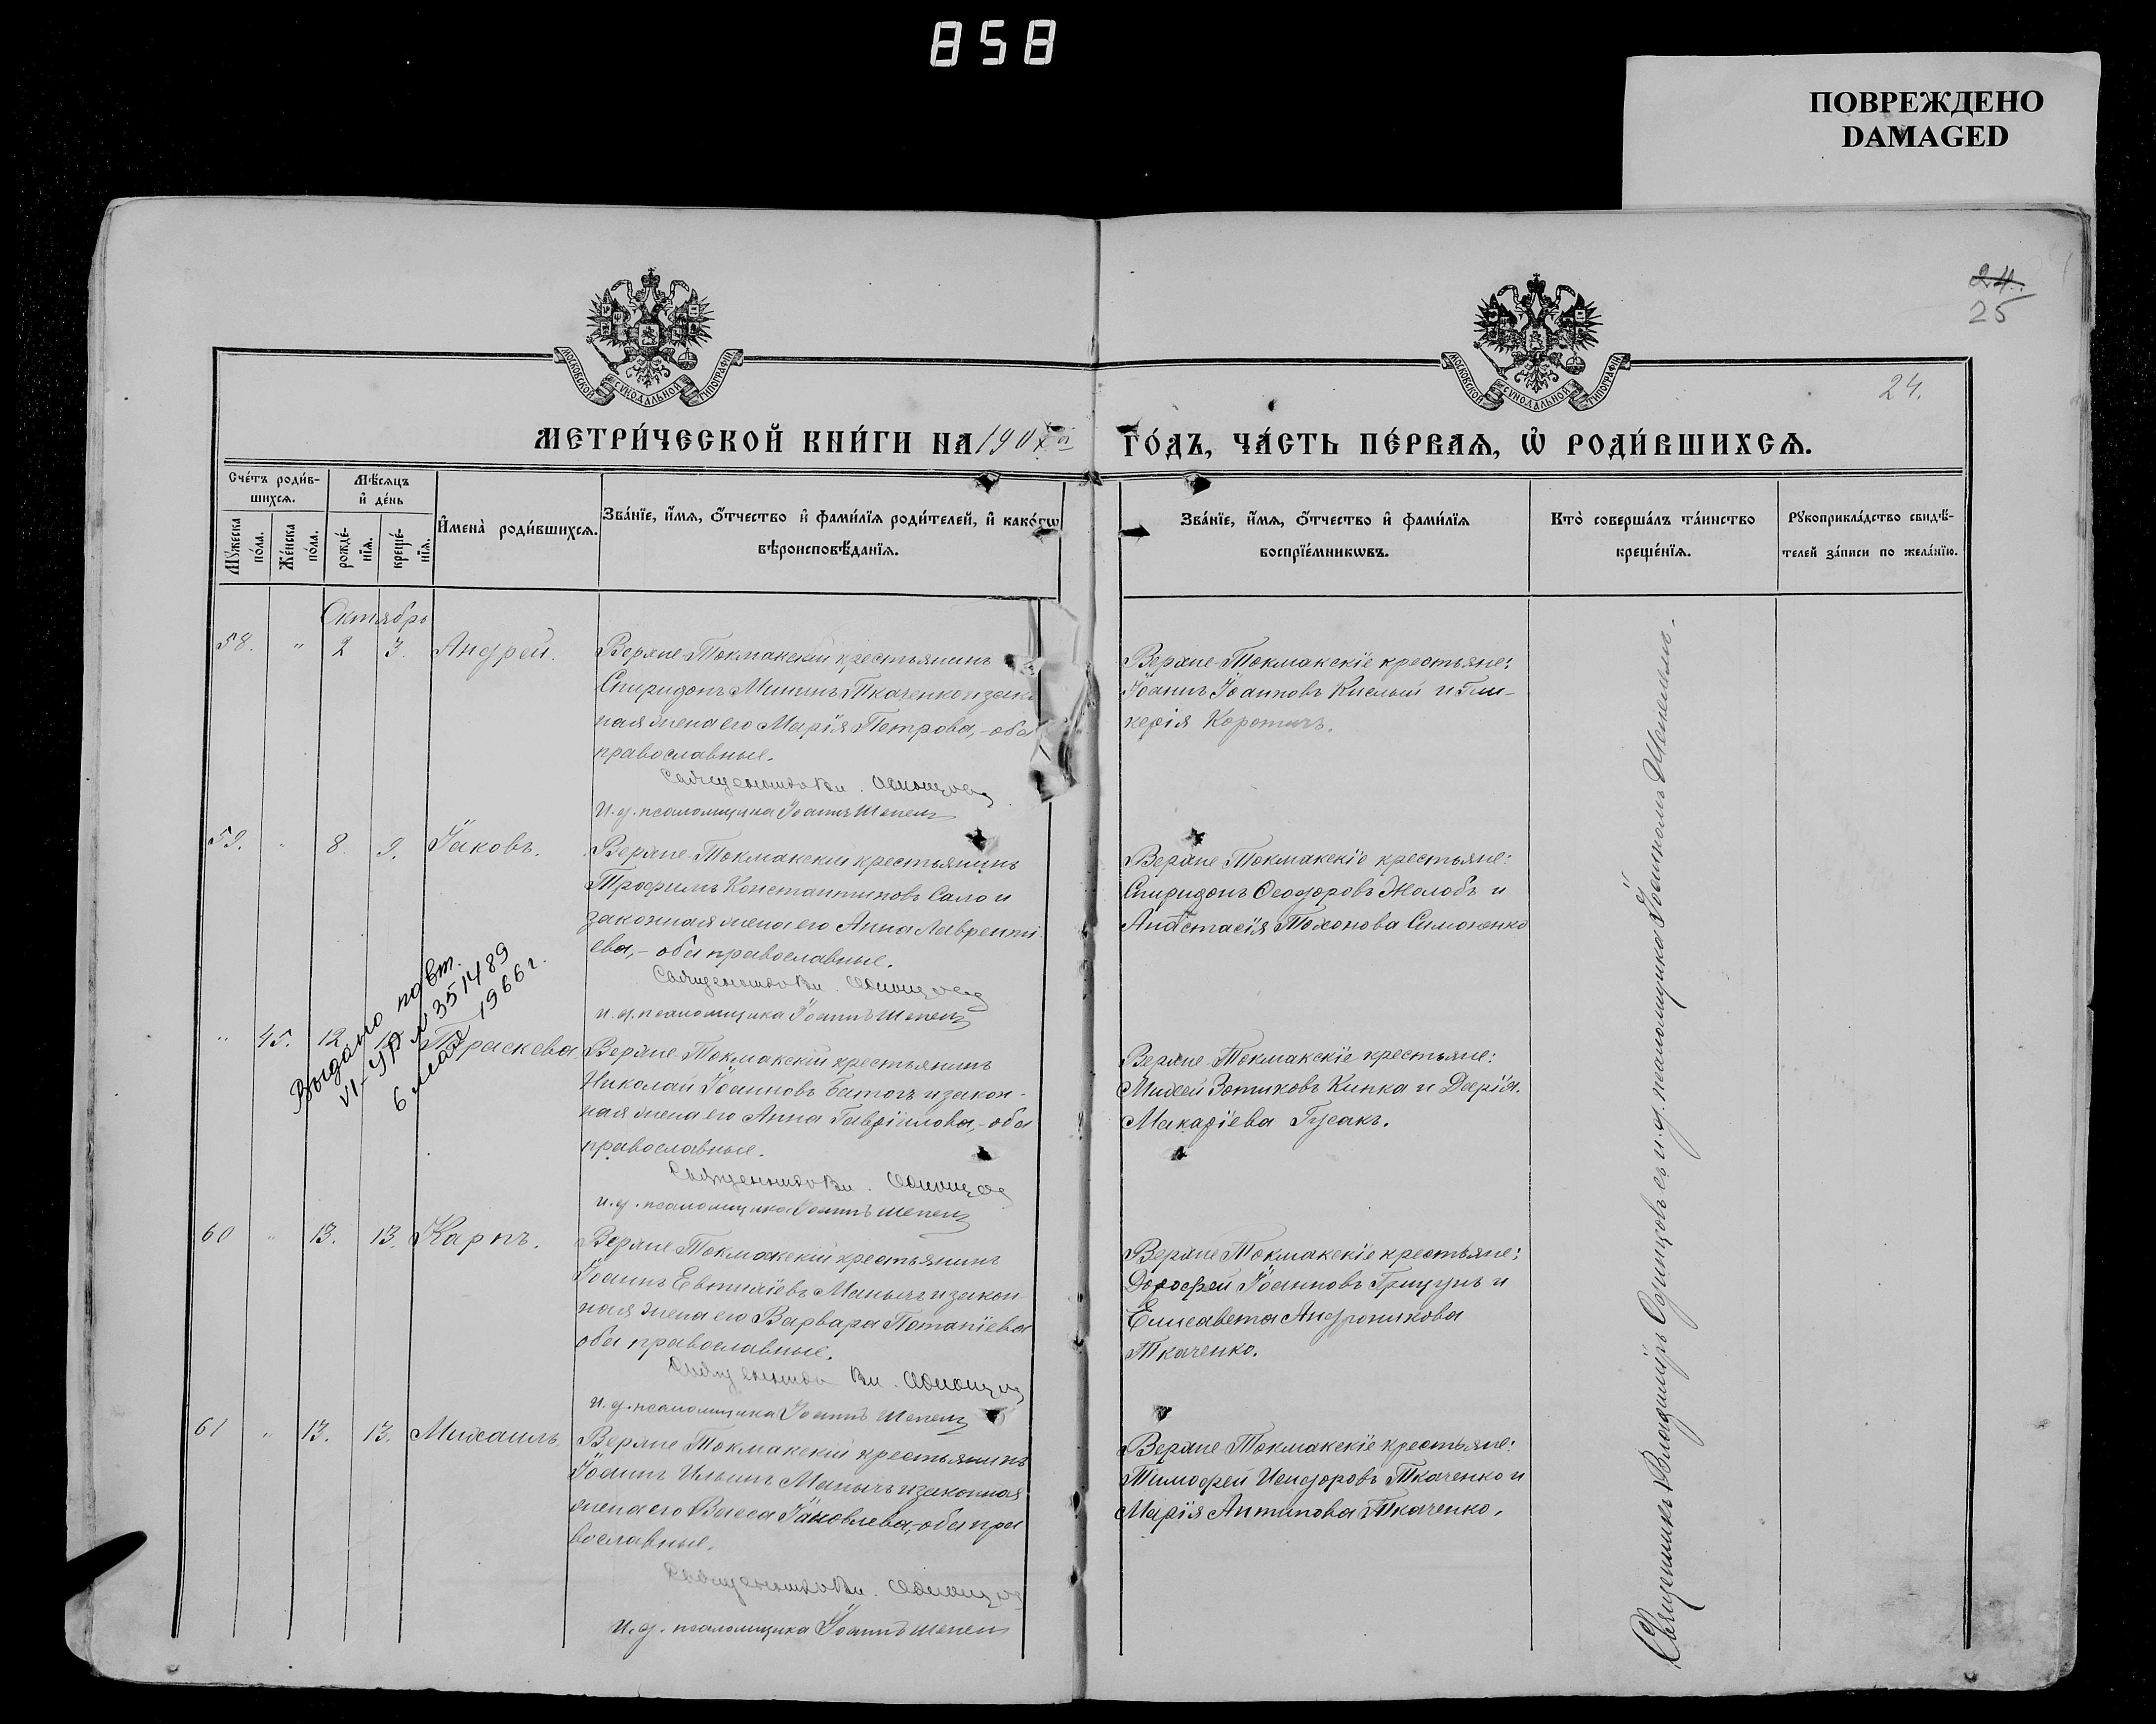 858
ПОВРЕЖДЕНО
DAMAGED
24.
25
24.
МОСКОВСКОЙ СѴНОДАЛЬНОЙ ТИПОГРАФІИ
МОСКОВСКОЙ СѴНОДАЛЬНОЙ ТИПОГРАФІИ
МЕТРИ́ЧЕСКОЙ КНИ́ГИ НА 190
ГО́ДЪ, ЧА́СТЬ ПЕ́РВАѦ, Ѡ҆ РОДИ́ВШИХСѦ.
Сче́тъ роди́в-
шихсѧ.
Мѣ́сяцъ
и҆ де́нь
Мꙋ́жеска по́ла.
Же́нска по́ла.
рожде́-
нїѧ.
креще́-
нїѧ.
И҆мена̀ роди́вшихсѧ.
Зва́нїе, и҆́мѧ, ѻ҆́тчество и҆ фами́лїѧ роди́телей, и҆ како́гѡ
вѣроисповѣ́данїѧ.
Зва́нїе, и҆́мѧ, ѻ҆́тчество и҆ фами́лїѧ
воспрїе́мникѡвъ.
Кто̀ соверша́лъ та́инство
креще́нїѧ.
Рꙋкоприкла́дство свидѣ́-
телей за́писи по жела́нїю.
Октябрь
58. " 2 3. Андрей.
Верхне-Токмакскій крестьянинъ
Спиридонъ Мининъ Ткаченко и зак
ная жена его Марія Петрова,-оба
православные.
Священникъ Вл. Одинцовъ
И.д. псаломщика Іоаннъ Шепель
Верхне-Токмакскіе крестьяне:
Іоаннъ Іоанновъ Кислый и Гли-
керія Коротичъ.
59. " 8. 9. Іаковъ.
Верхне-Токмакскій крестьянинъ
Трофимъ Константиновъ Сало и
законная жена его Анна Лавренті-
ева,- оба православные.
Священникъ Вл. Одинцовъ
И.д. псаломщика Іоаннъ Шепель
Верхне-Токмакскіе крестьяне:
Спиридонъ Ѳеодоровъ Жолобъ и
Анастасія Тихонова Симоненко
Выдано повт.
VI-УР № 351489
6 мая 1966 г.
" 45. 12 Параскева
Верхне-Токмакскій крестьянинъ
Николай Іоанновъ Батогъ и закон-
ная жена его Анна Гавріилова,-оба
православные.
Священникъ Вл. Одинцовъ
И.д. псаломщика Іоаннъ Шепель
Верхне-Токмакскіе крестьяне:
Михей Зотиковъ Кипка и Дарія
Макаріева Гусакъ.
60 " 13. 13. Карпъ.
Верхне Токмакскій крестьянинъ
Іоаннъ Евтихіевъ Манычъ и закон
ная жена его Варвара Потапіева
оба православные.
Священникъ Вл. Одинцовъ
И.д. псаломщика Іоаннъ Шепель
Верхне Токмакскіе крестьяне:
Дороѳей Іоанновъ Грицунъ и
Елисавета Андроникова
Ткаченко.
61 " 13. 13. Михаилъ.
Верхне Токмакскій крестьянинъ
Іоаннъ Ильинъ Манычъ и законная
жена его Васса Іаковлева,-оба пра
вославные.
Священникъ Вл. Одинцовъ
И.д. псаломщика Іоаннъ Шепель
Верхне-Токмакскіе крестьяне:
Тимоѳей Исидоровъ Ткаченко и
Марія Антипова Ткаченко.
Священникъ Владиміръ Одинцовъ съ и.д. псаломщика Іоанномъ Шепелемъ.